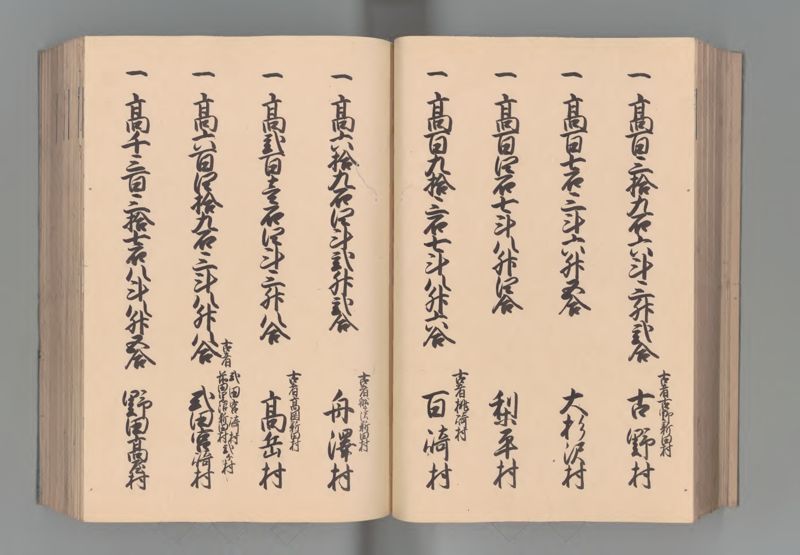 一高百三拾九石六斗三升弐合
古者古野新田村
古野村
一高百七石三斗六升五合
大杉沢村
一高百四石七斗八升四合
梨平村
一高百九拾三石七斗八升六合
古者桃崎村
百崎村
一高六拾九石四斗弐升弐合
舟澤村
一高弐百壱石四斗三升八合
古者高岡新田村
高岳村
一高六百四拾九石三斗八升八合
古者
弐田宮崎村
弐田宮崎村
一高千三百三拾七石八斗八升五合
野田高屋村